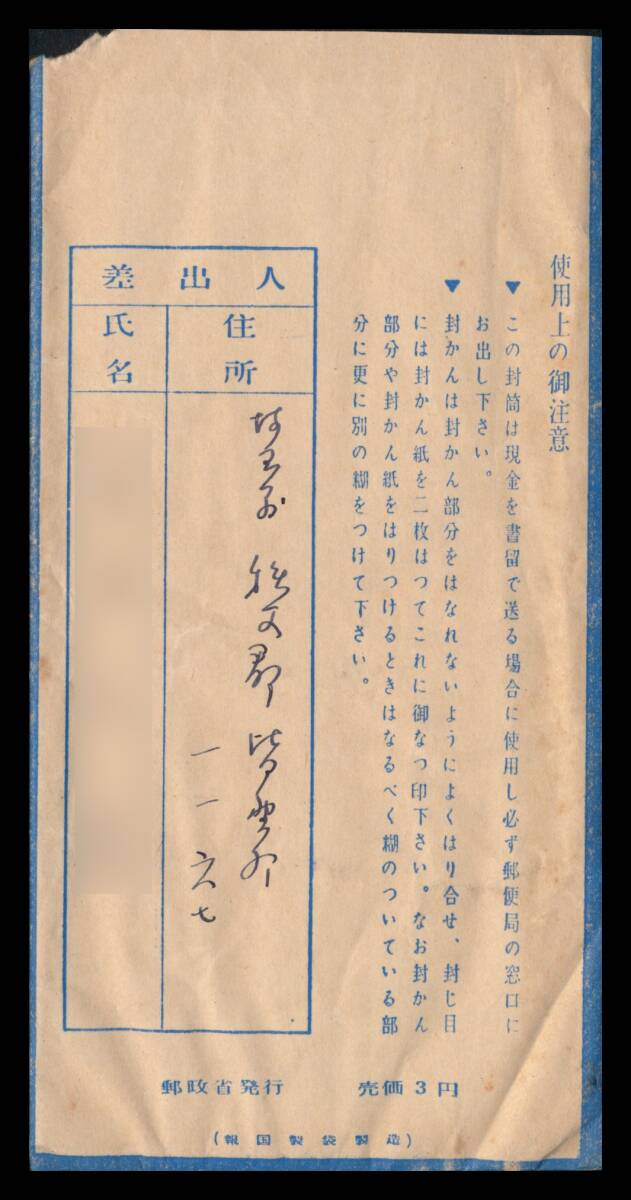 使用上の御注意
▼この封筒は現金を書留で送る場合に使用し必ず郵便局の窓口に
お出し下さい。
▼封かんは封かん部分をはなれないようによくはり合せ、封じ目
には封かん紙を二枚はつてこれに御なつ印下さい。なお封かん
部分や封かん紙をはりつけるときはなるべく糊のついている部
分に更に別の糊をつけて下さい。
差出人
住所
埼玉県 秩父郡 皆野町
一一六七
氏名
郵政省発行 売価3円
(報国製袋製造)